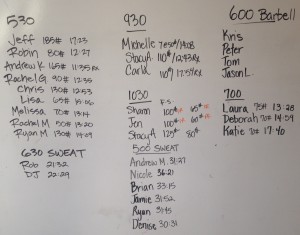 530
Jeff 185# 17:23
Robin 80# 12:27
Andrew K 165# 11:35RX
Rachel G 90# 12:35
Chris 130# 12:53
Lisa 65# 15:06
Melissa 70# 13:14
Rachel M 50# 13:20
Ryan M 130# 14:09
630 SWEAT
Rob 21:32
DJ 22:29
930
Michelle 75# 14:08
Stacy A 110# 12:43RX
Carla 110# 17:54RX
1030 F.S.
Shann 100#
Jen 100#
Stacy A 125# 80#
500 SWEAT
Andrew M. 31:27
Nicole 36:21
Brian 33:15
Jamie 31:52
Ryan 31:45
Denise 30:31
600 Barbell
Kris
Peter
Tom
Jason L.
700
Laura 75# 13:28
Deborah 70# 14:03
Katie 70# 17:40